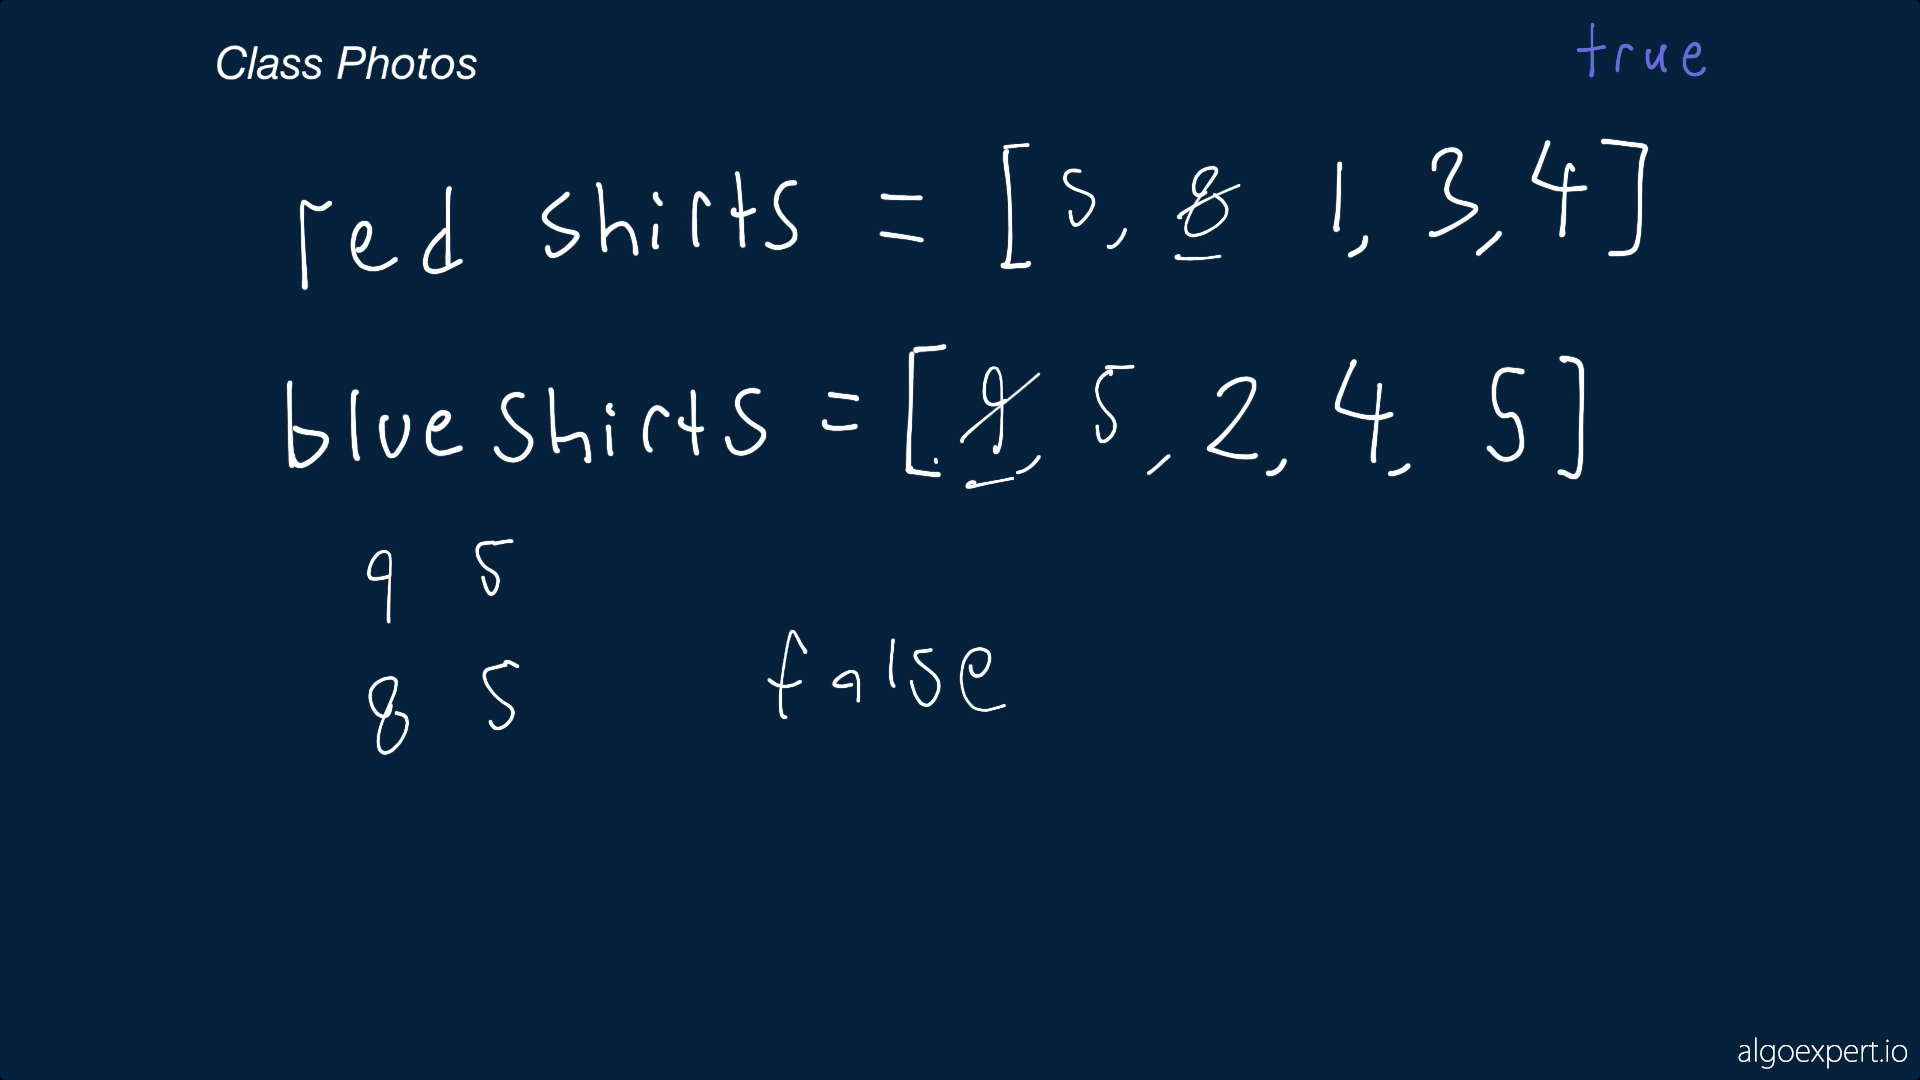 Class Photos
true
red shirts = [5, 8 1, 3, 4]
blue shirts = [9, 5, 2, 4, 5]
9 5
8 5
false
algoexpert.io